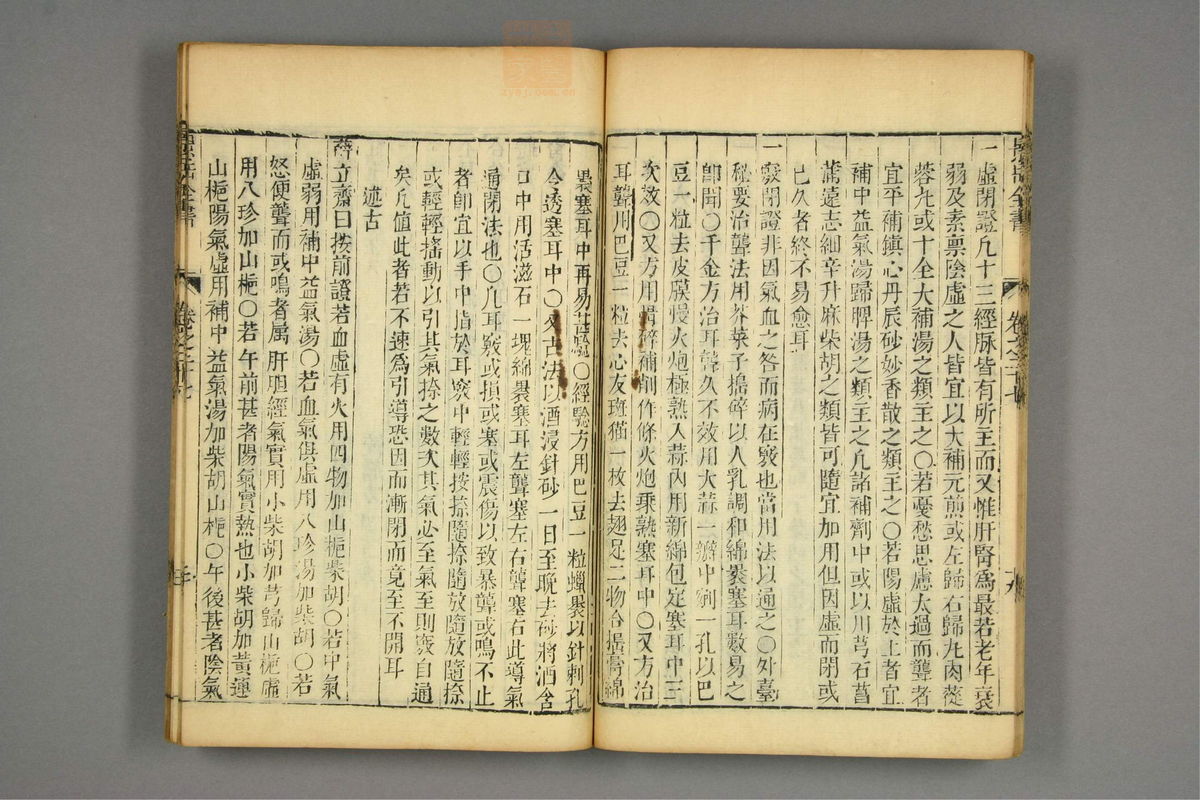 一虛閉證凡十三經脉皆有所主而又惟肝腎爲最若老年衰
弱及素禀陰虛之人皆宜以大補元煎或左歸右歸丸肉蓯
蓉丸或十全大補湯之類主之○若憂愁思慮太過而聾者
宜平補鎮心丹辰砂妙香散之類主之○若陽虛於上者宜
補中益氣湯歸脾湯之類主之凡諸補劑中或以川芎石菖
蒲遠志細辛升麻柴胡之類皆可隨宜加用但因虛而閉或
已久者終不易愈耳
一竅閉證非因氣血之咎而病在竅也當用法以通之○外臺
秘要治聾法用芥菜子搗碎以人乳調和綿裹塞耳數易之
即聞○千金方治耳聾久不效用大蒜一瓣中剜一孔以巴
豆一粒去皮膜慢火炮極熟入蒜內用新綿包定塞耳中三
次效○又方用骨碎補削作條火炮乘熟塞耳中○又方治
耳聾用巴豆一粒去心皮斑猫一枚去翅足二物合搗膏綿
裹塞耳中再易甚驗○經驗方用巴豆一粒蠟裹以針刺孔
令透塞耳中○又古法以酒浸針砂一日至晚去砂將酒含
口中用活滋石一塊綿裹塞耳左聾塞左右聾塞右此導氣
通閉法也○凡耳竅或損或塞或震傷以致暴聾或鳴不止
者即宜以手中指於耳竅中輕輕按捺隨捺隨放隨放隨捺
或輕輕搖動以引其氣捺之數次其氣必至氣至則竅自通
矣凡值此者若不速爲引導恐因而漸閉而竟至不開耳
述古
薛立齋曰按前證若血虛有火用四物加山梔柴胡○若中氣
虛弱用補中益氣湯○若血氣俱虛用八珍湯加柴胡○若
怒便聾而或鳴者属肝胆經氣實用小柴胡加芎歸山梔虛
用八珍加山梔○若午前甚者陽氣實熱也小柴胡加黃連
山梔陽氣虛用補中益氣湯加柴胡山梔○午後甚者陰氣